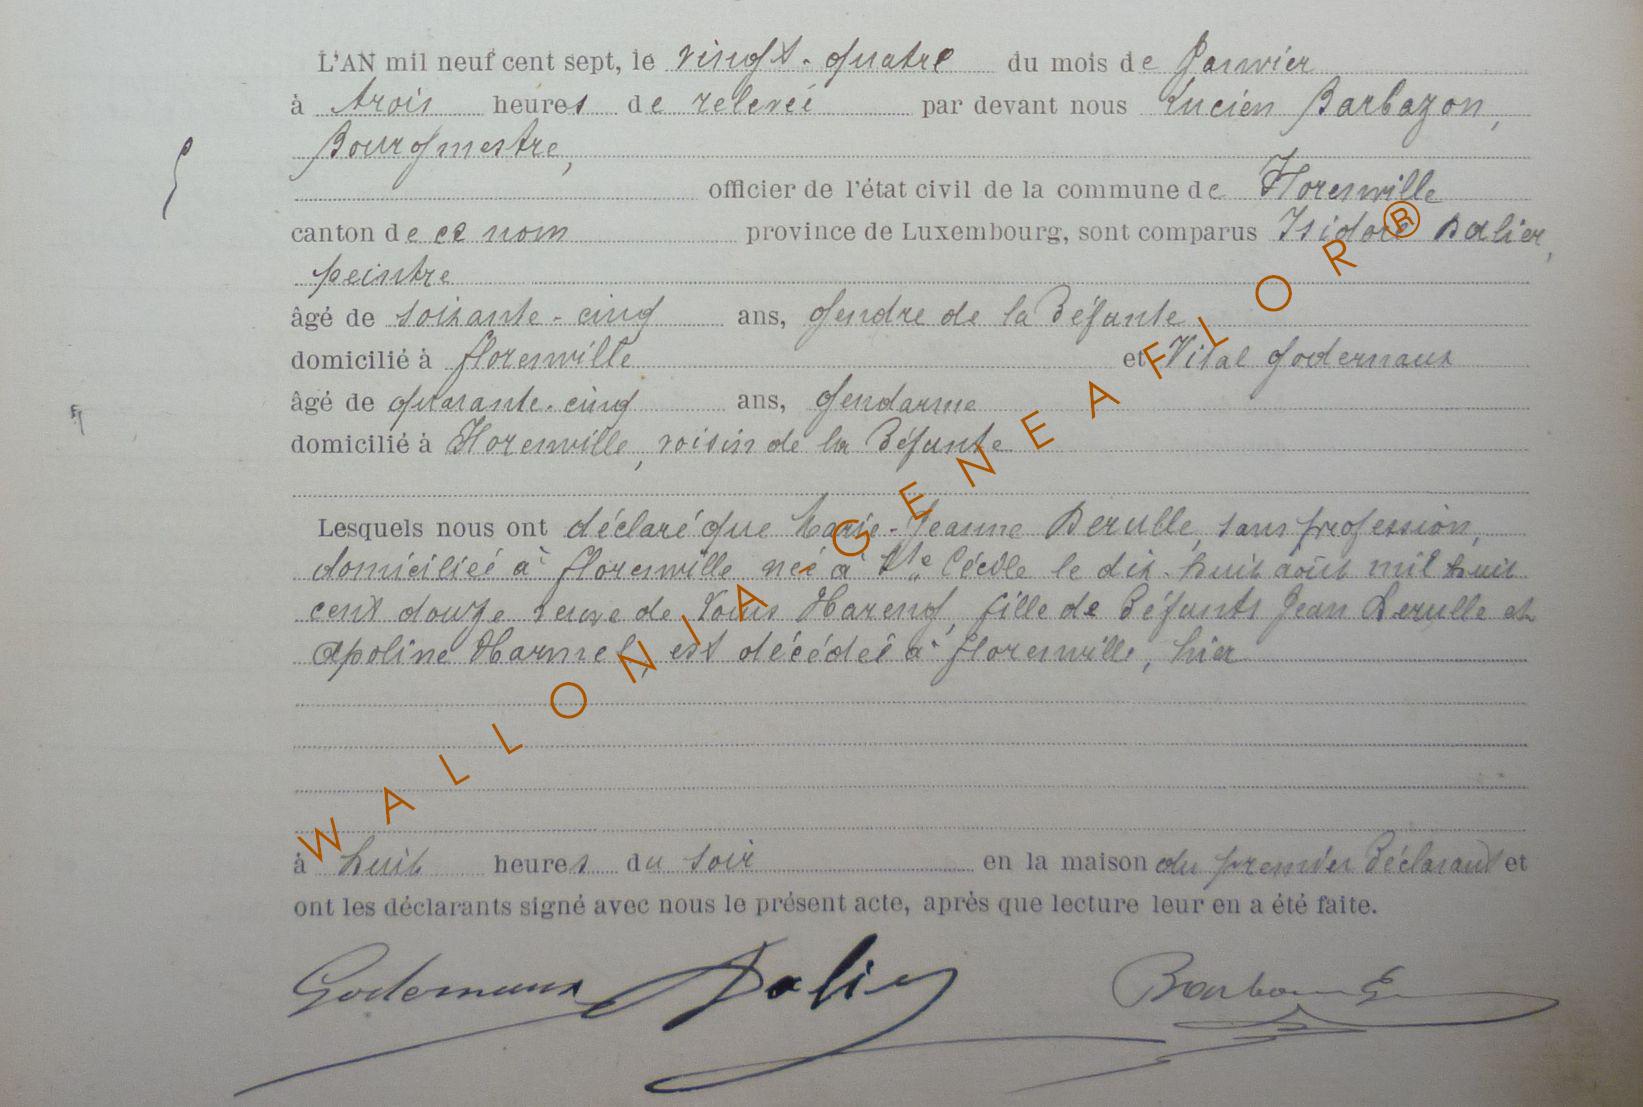 L'AN mil neuf cent sept, le vingt-quatre du mois de Janvier
à trois heures de relevée par devant nous Lucien Barbazon,
Bourgmestre,
officier de l'état civil de la commune de Florenville
canton de ce nom province de Luxembourg, sont comparus Isidore Dalier,
peintre
âgé de soixante-cinq ans, gendre de la Défunte
domicilié à florenville et Vital Godernaux
âgé de quarante-cinq ans, gendarme
domicilié à Florenville, voisin de la Défunte
Lesquels nous ont déclaré que Marie-Jeanne Derulle, sans profession,
domiciliée à florenville née à Ste Cécile le dix-huit août mil huit
cent douze veuve de Louis Hareng, fille de Défunts Jean Derulle et
Apoline Harmel, est décédée à florenville, hier
à huit heures du soir en la maison du premier Déclarant et
ont les déclarants signé avec nous le présent acte, après que lecture leur en a été faite.
Godernaux Dalier Barbazon
WALLONIA-GENEAFLOR®